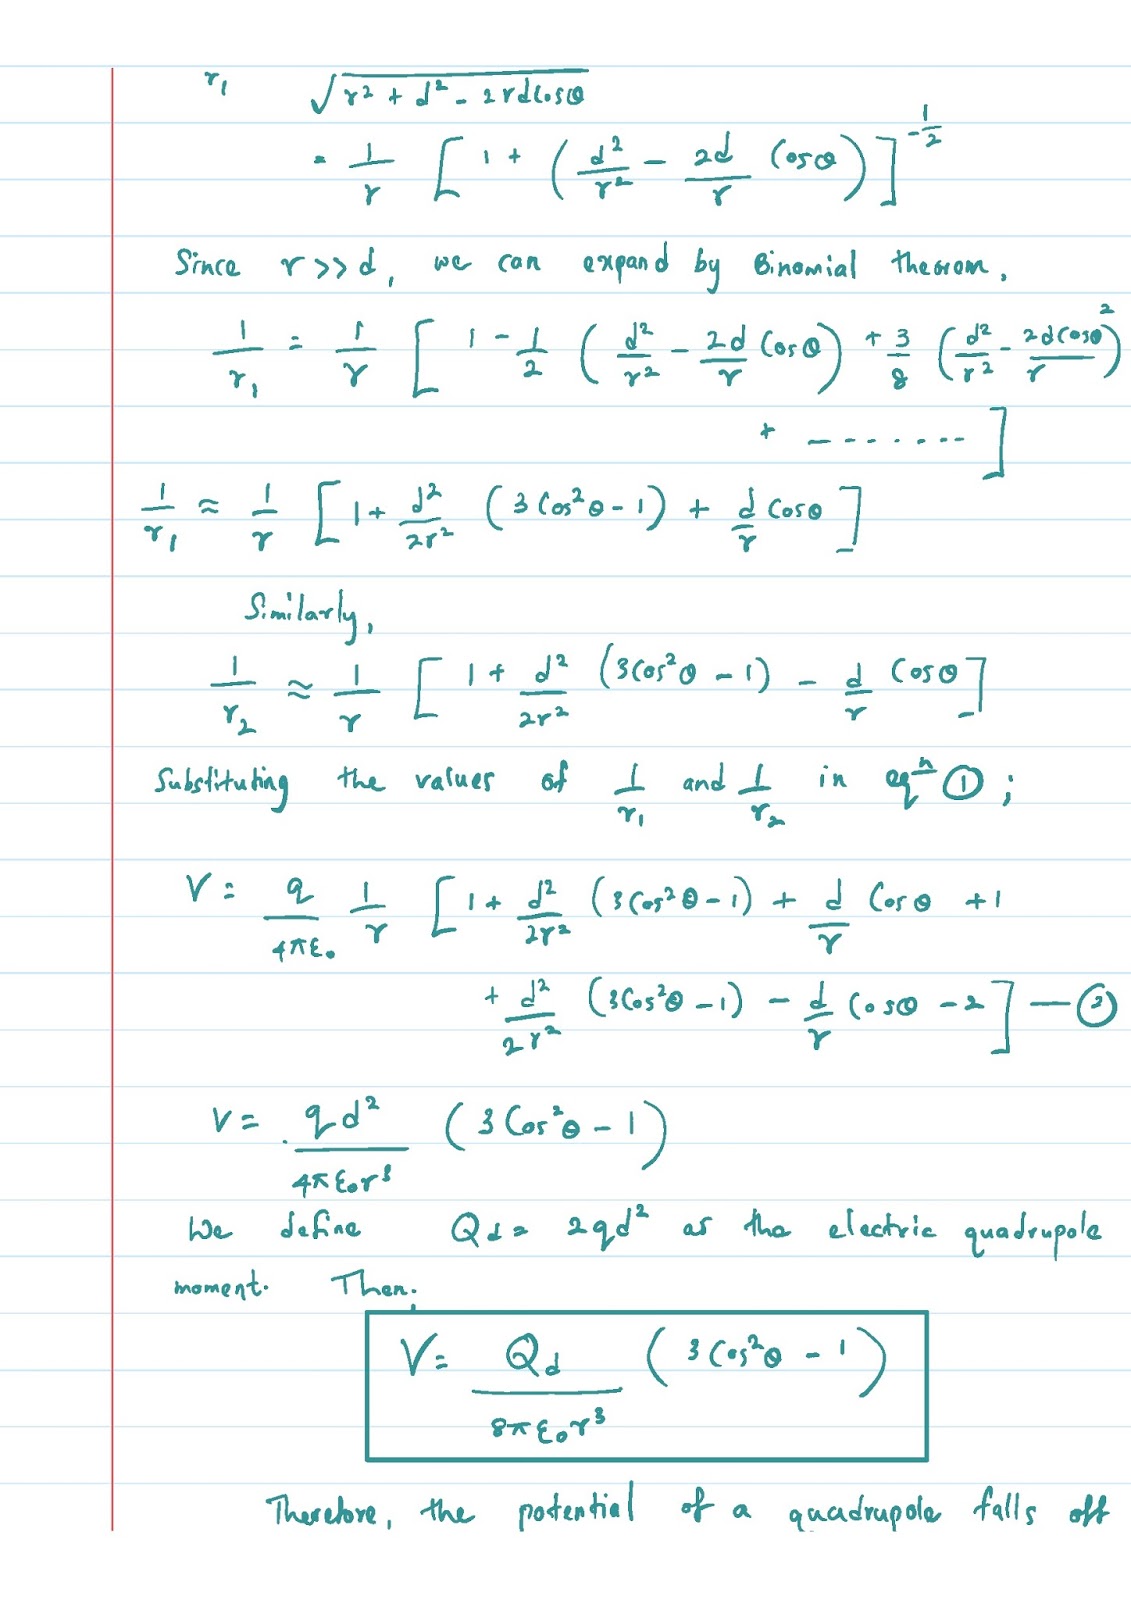 r₁ √(r² + d² - 2rdCosθ)
= 1/r [1 + (d²/r² - 2d/r Cosθ)]^(-1/2)
Since r >> d, we can expand by Binomial theorem,
1/r₁ = 1/r [1 - 1/2 (d²/r² - 2d/r Cosθ) + 3/8 (d²/r² - 2dCosθ/r)²
+ - - - - - - - - ]
1/r₁ ≈ 1/r [1 + d²/2r² (3Cos²θ - 1) + d/r Cosθ]
Similarly,
1/r₂ ≈ 1/r [1 + d²/2r² (3Cos²θ - 1) - d/r Cosθ]
Substituting the values of 1/r₁ and 1/r₂ in eqⁿ ①;
V = q/4πε₀ 1/r [1 + d²/2r² (3Cos²θ - 1) + d/r Cosθ + 1
+ d²/2r² (3Cos²θ - 1) - d/r Cosθ - 2] — ②
V = qd²/4πε₀r³ (3Cos²θ - 1)
We define Qd = 2qd² as the electric quadrupole
moment. Then,
V = Qd/8πε₀r³ (3Cos²θ - 1)
Therefore, the potential of a quadrupole falls off